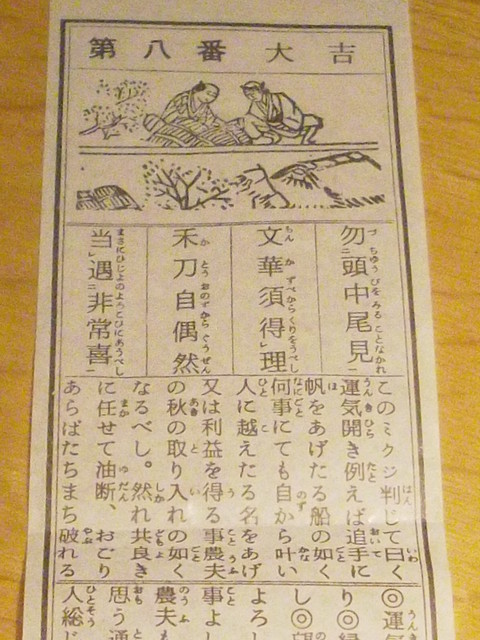 第八番　大吉
勿頭中尾見
文華須得理
禾刀自偶然
当遇非常喜
このミクジ判じて曰く
運気開き例えば追手に
帆をあげたる船の如く
何事にても自から叶い
人に越えたる名をあげ
又は利益を得る事農夫
の秋の取り入れの如く
なるべし。然れ共良き
に任せて油断、おごり
あらばたちまち破れる
◎運気
り◎縁
し◎望
よろし
事よし
農夫も
思う通
人総じ